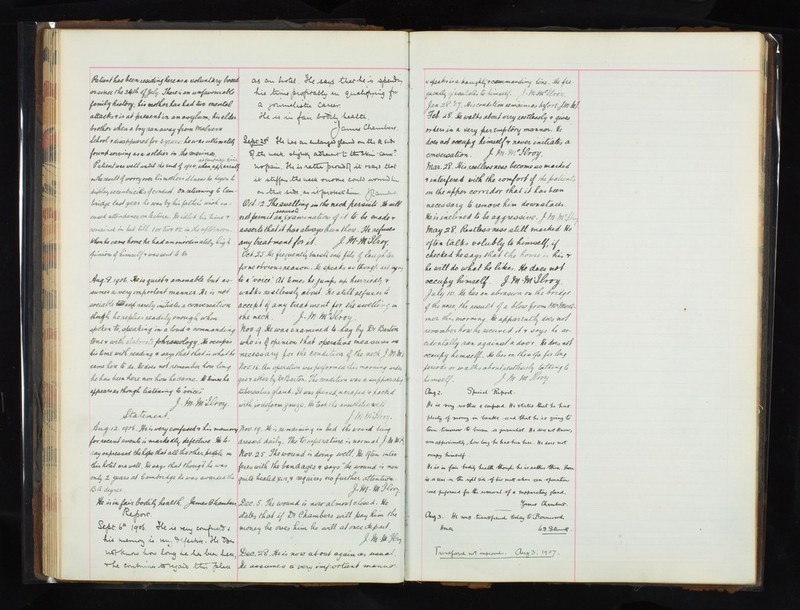 Patient has been residing here as a voluntary boarder
on since the 24th of July. There is an unfavourable
family history, his mother has had two mental
attacks & is at present in an asylum, his elder
brother when a boy ran away from Malvern
School & disappeared for 2 years: he was ultimately
found serving as a soldier in the
Patient was well until the end of 1902, when apparently
as the result of worry over his mother's illness he began to
display eccentricities of conduct. On returning to Cam-
bridge last year he was by his father wish
most attendance on lecture. He
remained in bed till or two o'c in the afternoon.
When he came home he had an inordinately high
opinion of himself & was sent to
Aug. 9. 1906. He is quiet & amenable but as-
sumes a very important manner. He is not
sociable & rarely initiates a conversation
though he replies readily enough when
spoken to, speaking in a loud & commanding
tone & with elaborate phraseology. He occupies
his time with reading & says that that is what he
came here to do. He does not remember how long
he has been here nor how he came. At times he
appears as though listening to voices.
J. M. McIlroy.
Statement.
Aug. 12. 1906. He is very confused & his memory
for recent events is markedly defective. He to-
day expressed the hope that all the other people in
this hotel are well. He says that though he was
only 2 years at Cambridge he was awarded the
B.A. degree.
He is in fair bodily health. James Chambers.
Report.
Sept. 6th 1906. He is very confused &
his memory is very defective. He does
not know how long he has been here,
& he continues to regard this place
as an hotel. He says that he is spending
his time profitably in qualifying for
a journalistic career.
He is in fair bodily health.
James Chambers.
Sept. 28. He has an enlarged gland on the R. side
of the neck slightly adherent to the skin: causes
no pain. He is rather proud of it: says that
it stiffens the neck: no one could wound him
on that side, as it protects him.
Oct. 12. The swelling in the neck persists. He will
not permit any examination of it to be made &
asserts that it has always been there. He refuses
any treatment for it. J. M. McIlroy.
Oct. 25. He frequently hoards up a pile of
for no obvious reason. He speaks as though replying
to a 'voice'. At times he jumps up hurriedly &
walks restlessly about. He still refuses to
accept of any treatment for the swelling in
the neck. J. M. McIlroy.
Nov. 9. He was examined to-day by Dr Barton
who is of opinion that operative measures are
necessary for the condition of the neck. J.M.McI.
Nov. 16. The operation was performed this morning under
gas & ether by Dr Barton. The condition was a suppurating
tuberculous gland. It was opened, scraped & packed
with iodoform gauze. He took the anaesthetic well.
J. M. McIlroy.
Nov. 19. He is remaining in bed, the wound being
dressed daily. The temperature is normal. J.M.McI.
Nov. 25. The wound is doing well. He often inter-
feres with the bandages & says the wound is now
quite healed & requires no further attention.
J. M. McIlroy.
Dec. 5. The wound is now almost closed. He
states that if Dr Chambers will pay him the
money he owes him he will at once depart.
J. M. McIlroy.
Dec. 28. He is now about again as usual.
He assumes a very important manner
& speaks in a haughty & commanding tone. He fre-
quently gesticulates to himself. J. M. McIlroy.
Jan. 28. '07. His condition remains as before. J.M.McI.
Feb. 28. He walks about very restlessly & gives
orders in a very peremptory manner. He
does not occupy himself & never initiates a
conversation. J. M. McIlroy.
Mar. 28. His restlessness became so marked
& interfered with the comfort of the patients
on the upper corridor that it has been
necessary to remove him downstairs.
He is inclined to be aggressive. J. M. McIlroy
May 28. Restlessness still marked. He
often talks volubly to himself, if
checked he says that the house is his &
he will do what he likes. He does not
occupy himself. J. M. McIlroy.
July 10. He has an abrasion on the bridge
of the nose, the result of a blow from
this morning. He apparently does not
remember how he received it & says he ac-
cidentally ran against a door. He does not
occupy himself. He lies on the sofa for long
periods or walks about restlessly talking to
himself. J. M. McIlroy
Aug. 2. Special Report.
He is very restless & confused. He states that he has
plenty of money in banks and that he is going to
town tomorrow to cannot
am approximately, how long he has been here. He does not
occupy himself.
He is in fair bodily health though he is rather thin. There
is a scar on the right side of his neck where an operation
was performed for the removal of a suppurating gland.
James Chambers.
Aug. 3. He was transferred today to
House.
Transferred not improved. Aug. 3. 1907.